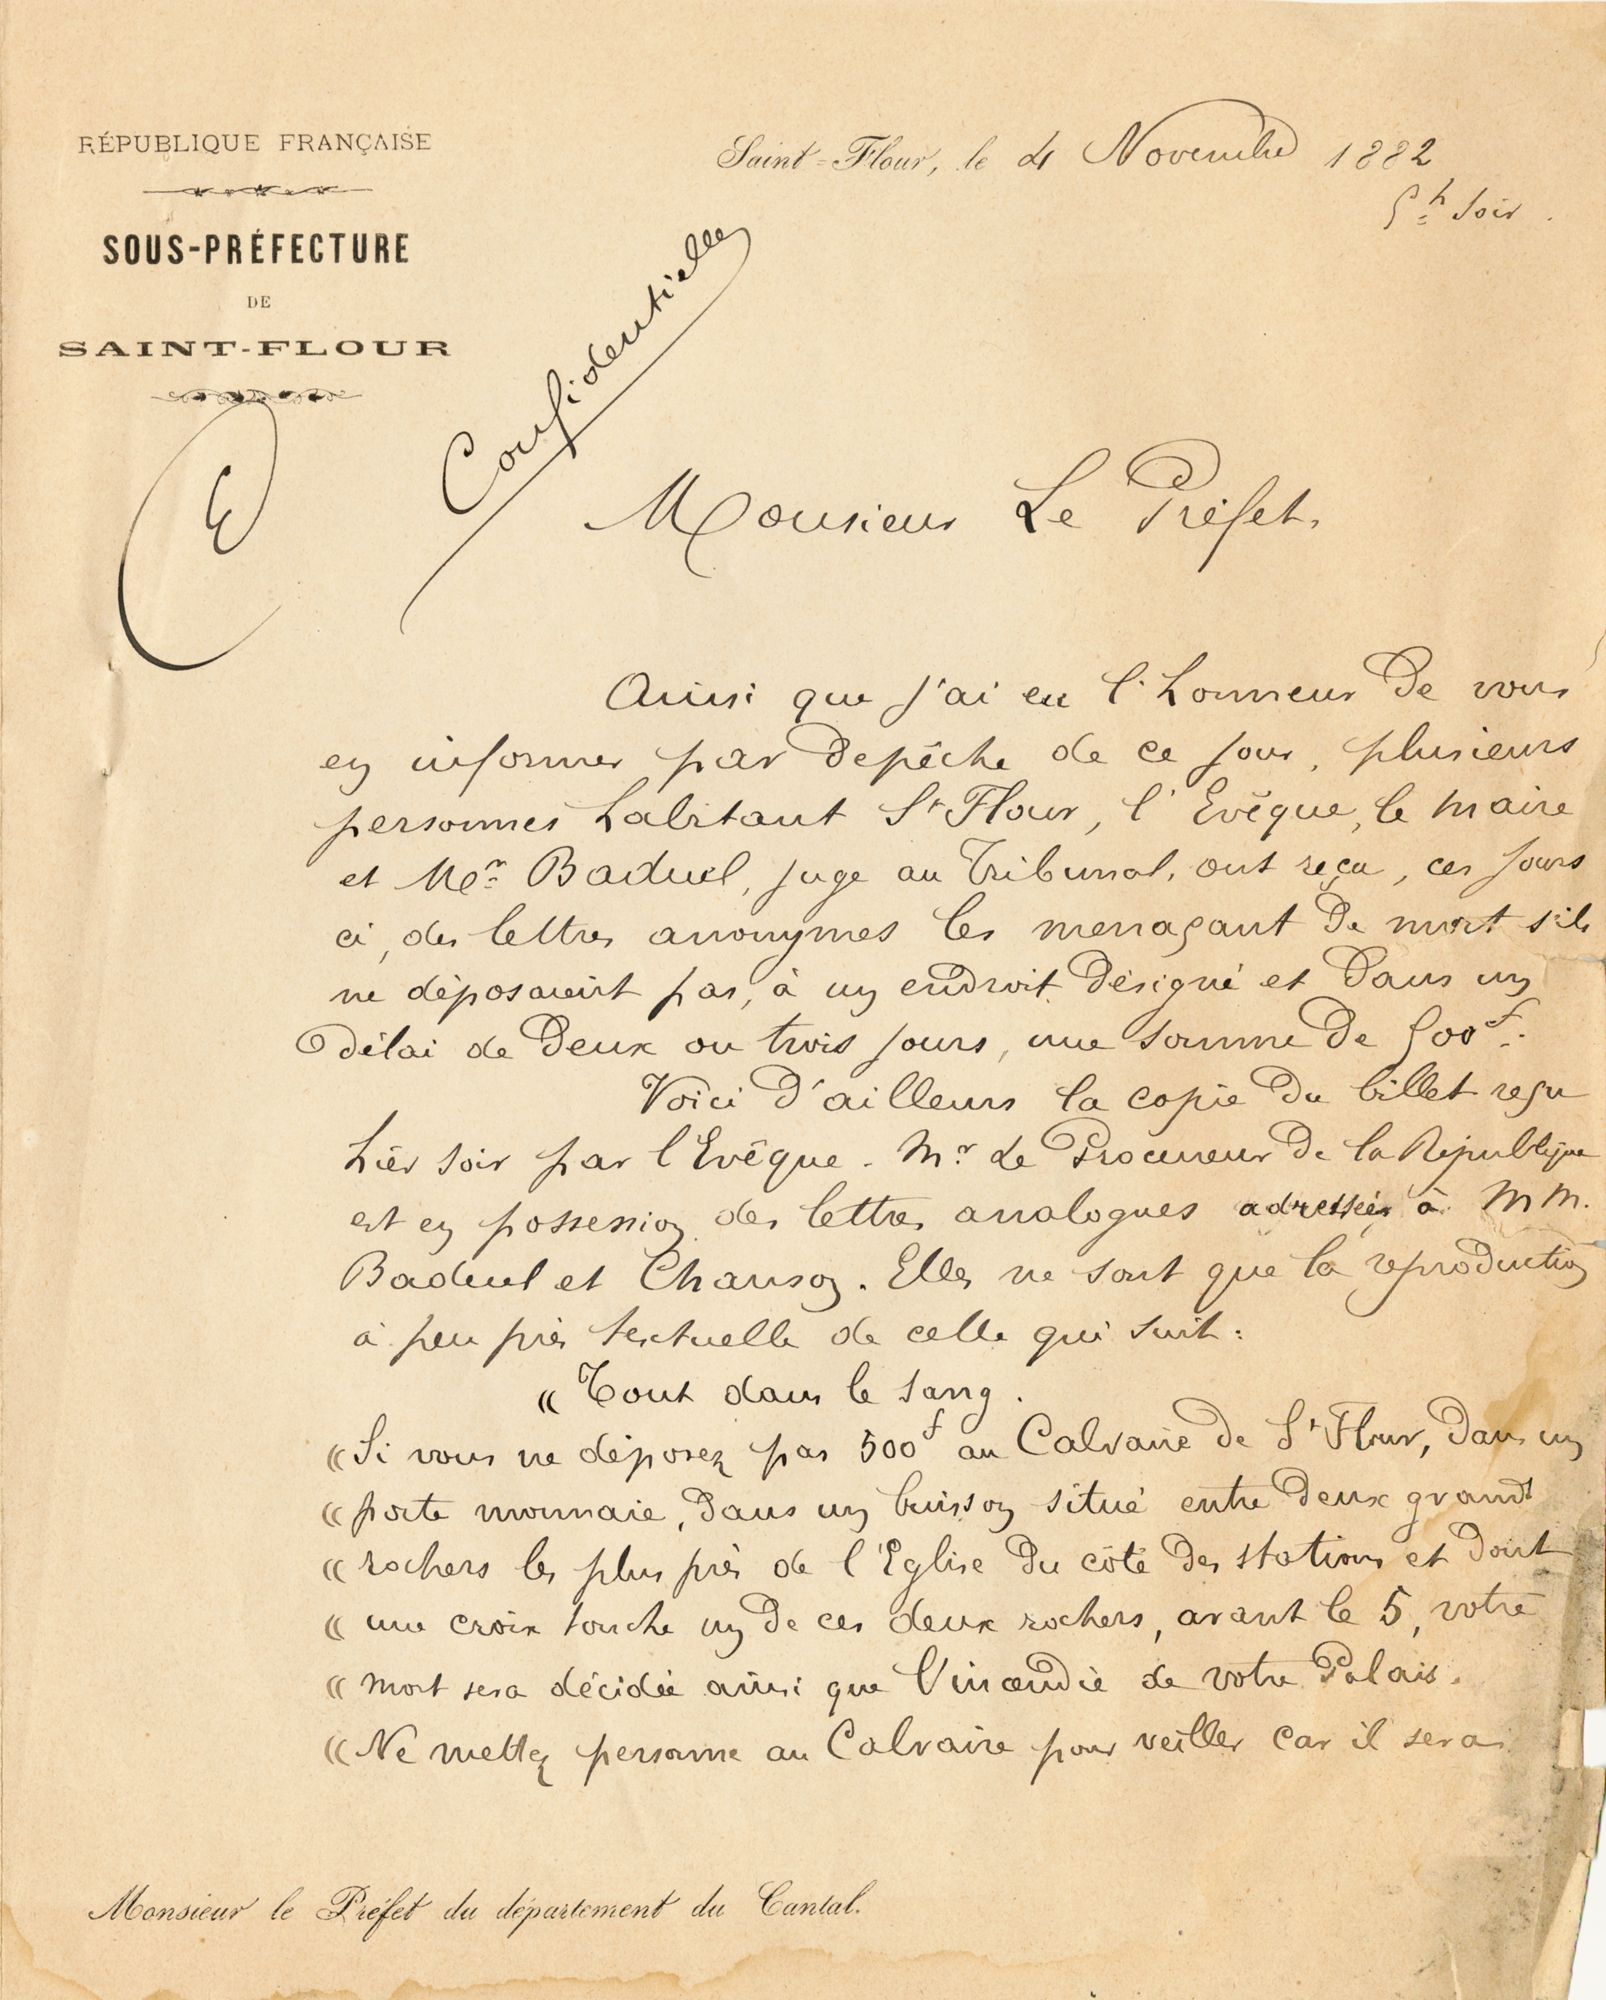 RÉPUBLIQUE FRANÇAISE
SOUS-PRÉFECTURE
DE
SAINT-FLOUR
Saint-Flour, le 4 Novembre 1882
5h soir.
Confidentielle
E
Monsieur Le Préfet,
Ainsi que j'ai eu l'honneur de vous
en informer par dépêche de ce jour, plusieurs
personnes habitant St Flour, l'Evêque, le Maire
et Mr Baduel, juge au Tribunal, ont reçu, ces jours
ci, des lettres anonymes les menaçant de mort s'ils
ne déposaient pas, à un endroit désigné et dans un
délai de deux ou trois jours, une somme de 500f.
Voici d'ailleurs la copie du billet reçu
hier soir par l'Evêque. Mr Le Procureur de la République
est en possession des lettres analogues adressées à MM.
Baduel et Chanson. Elles ne sont que la reproduction
à peu près textuelle de celle qui suit:
« Tout dans le sang.
« Si vous ne déposez pas 500f au Calvaire de St Flour, dans un
« porte monnaie, dans un buisson situé entre deux grands
« rochers les plus près de l'Eglise du côté des stations et dont
« une croix touche un de ces deux rochers, avant le 5, votre
« mort sera décidée ainsi que l'incendie de votre Palais.
« Ne mettez personne au Calvaire pour veiller car il sera
Monsieur le Préfet du département du Cantal.